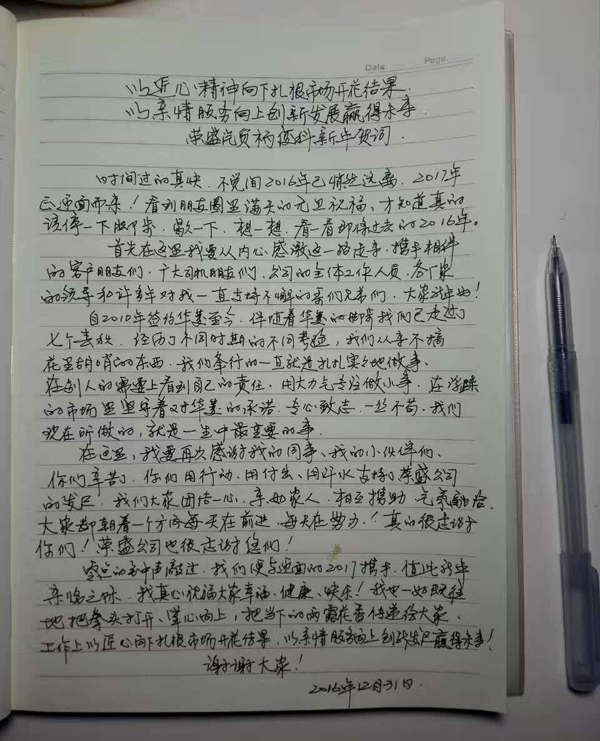 Date
Page
以匠心精神向下扎根市场开花结果
以亲情服务向上创新发展赢得未来
荣盛
新年贺词
时间过的真快，不觉间2016年已悄然远离，2017年
正迎面而来！看到朋友圈里满天的元旦祝福，才知道真的
该停一下脚步，歇一下，想一想，看一看即将过去的2016年。
首先在这里我要从内心感激这一路走来，携手相伴
的客户朋友们，广大司机朋友们，公司的全体工作人员，各厂家
的领导和许多年对我一直支持不懈的哥们兄弟们，大家
自2010年签约华美至今，伴随着华美的 我们已走过了
七个春秋，经历了不同时期的不同考验，我们从来不搞
花里胡哨的东西，我们奉行的一直就是扎扎实实地做事、
在别人的需要上看到自己的责任，用大力气专注做小事，在浮躁
的市场里坚守着对华美的承诺，专心致志，一丝不苟，我们
现在所做的，就是一生中最重要的事。
在这里，我要再次感谢我的同事、我的小伙伴们、
你们辛苦了，你们用行动、用付出、用汗水支持了荣盛公司
的发展，我们大家团结一心，亲如家人，相互携助，
大家都朝着一个方向每天在前进，每天在努力！真的很感谢
你们！荣盛公司也很感谢您们！
的钟声敲过，我们便与迎面的2017携手，值此新年
来临之际，我真心祝福大家幸福、健康、快乐！我也一如既往
地把拳头打开，掌心向上，把当下的雨露花香传递给大家，
工作上以匠心向下扎根市场开花结果，以亲情服务向上创新发展赢得未来！
谢谢大家！
2016年12月31日.